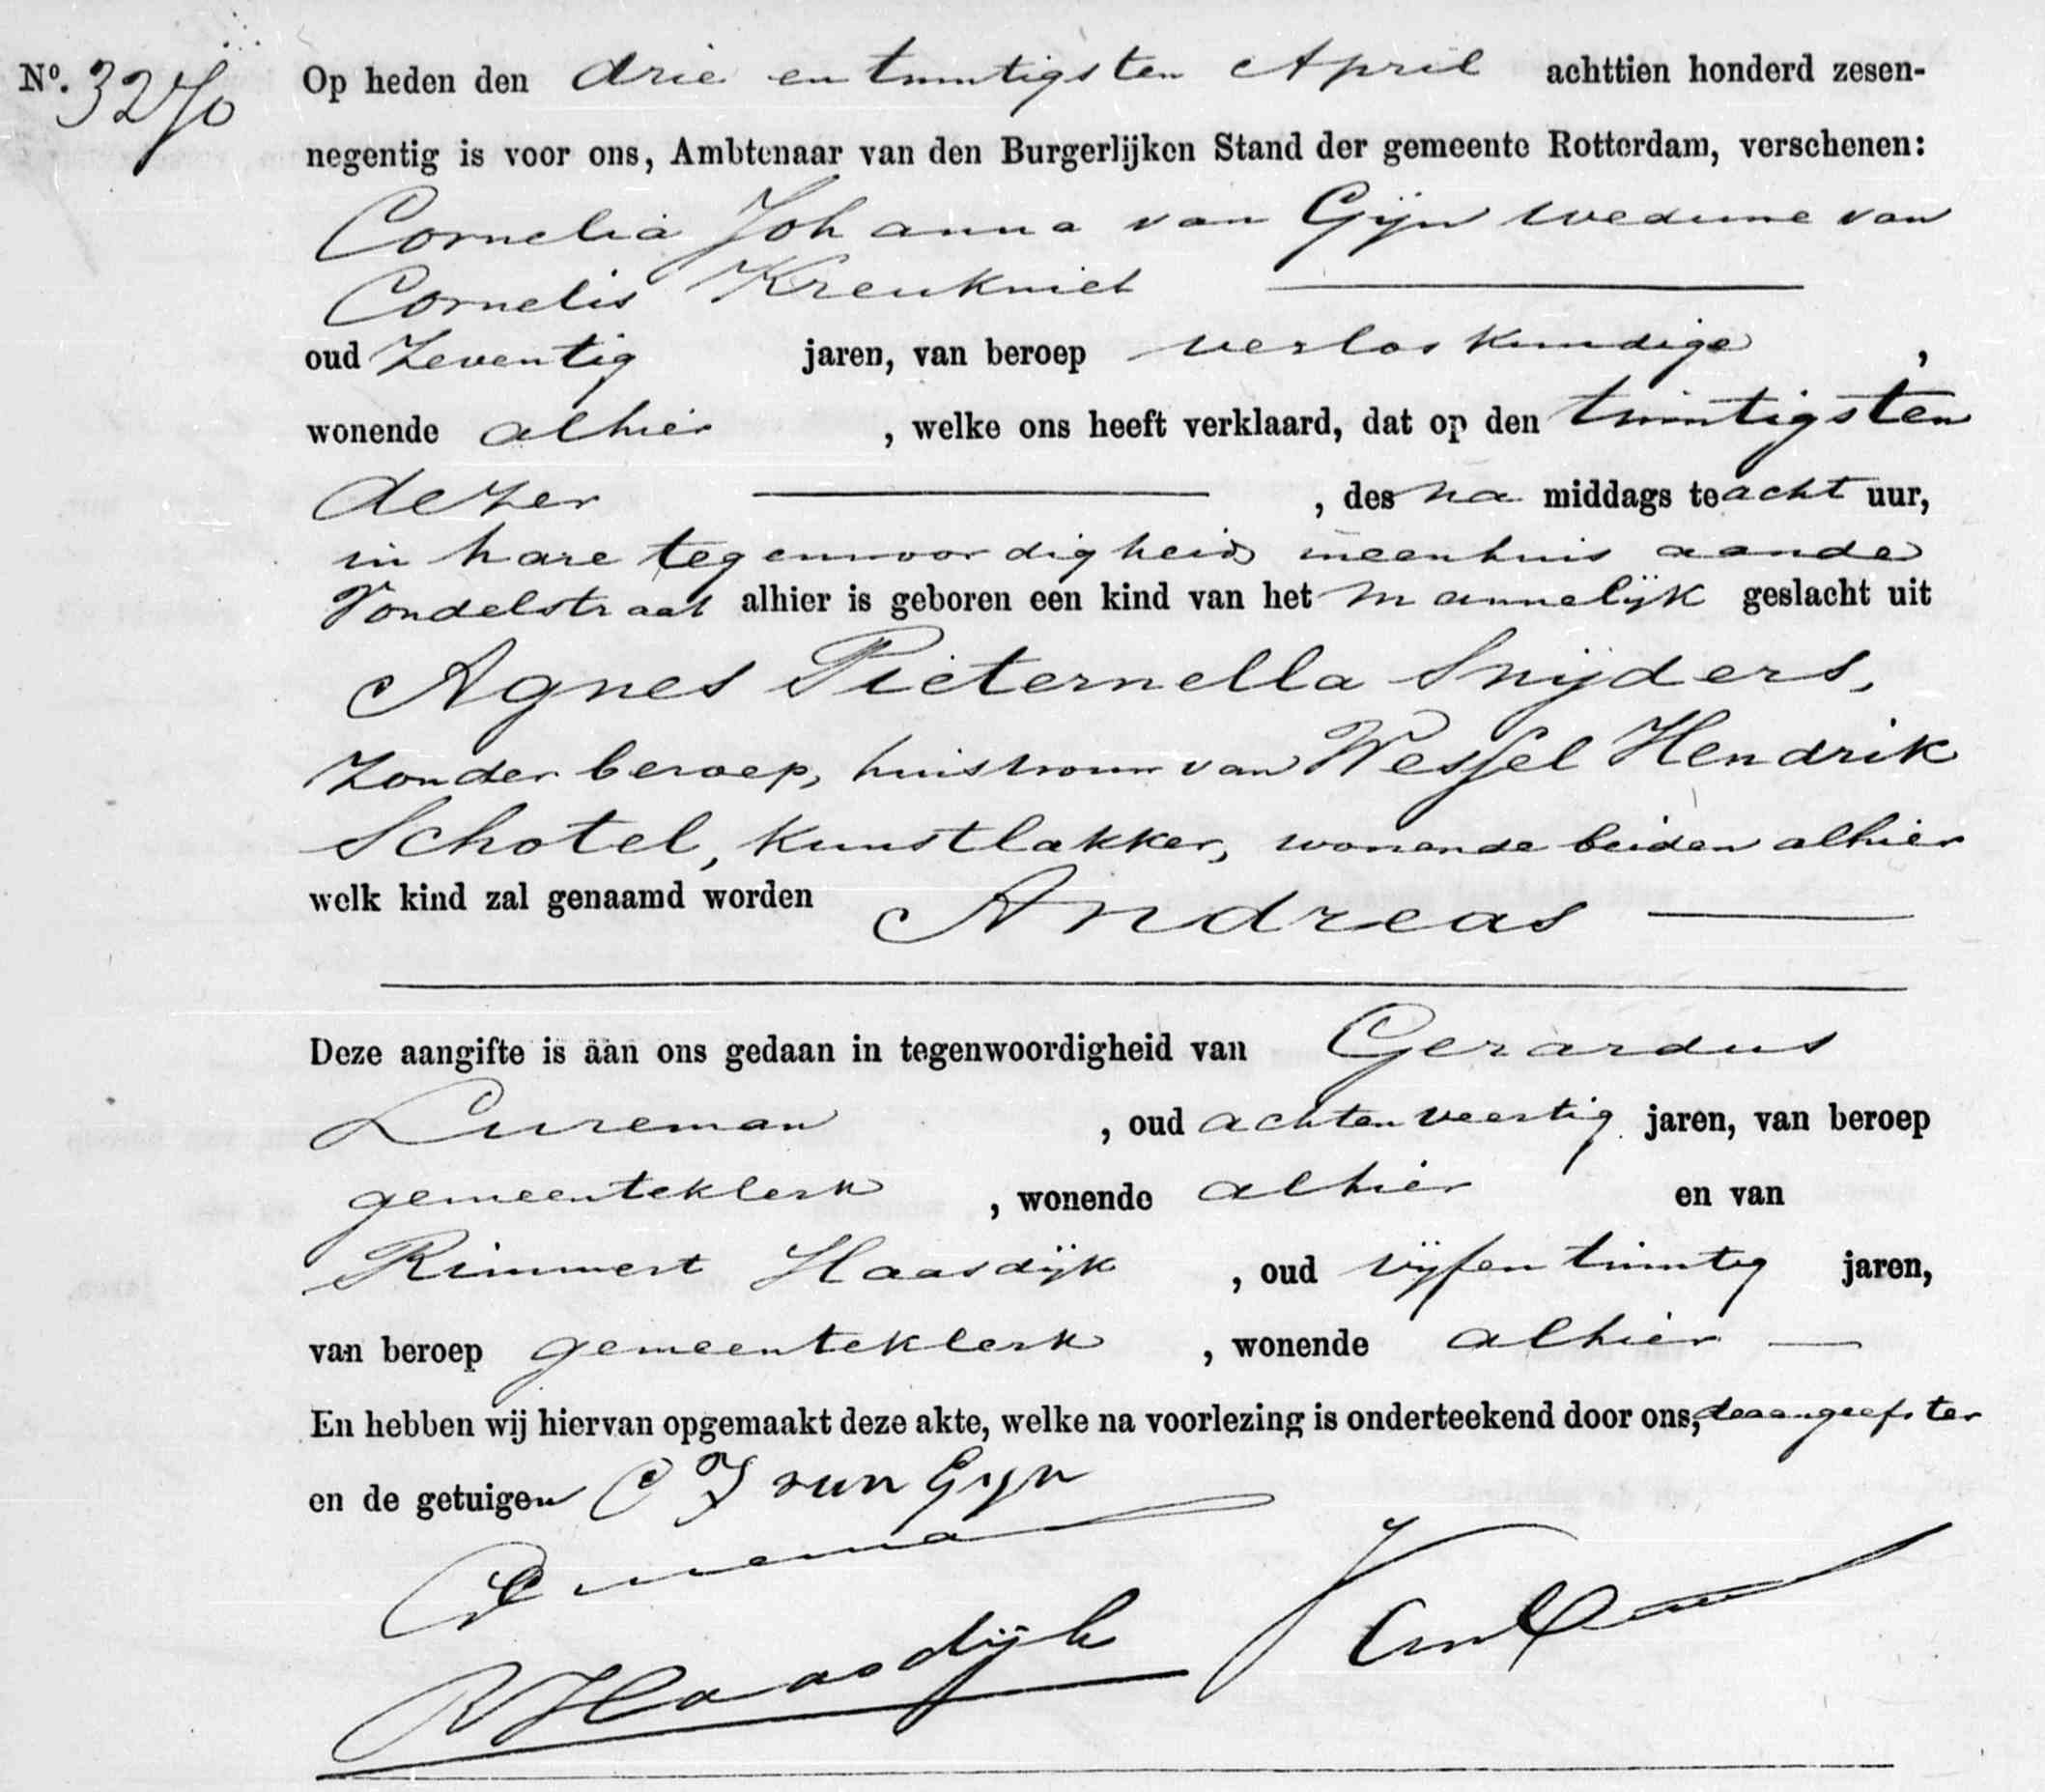 No. 3270 Op heden den drie en twintigsten April achttien honderd zesen-
negentig is voor ons, Ambtenaar van den Burgerlijken Stand der gemeente Rotterdam, verschenen:
Cornelia Johanna van Gijn weduwe van
Cornelis Kreukniet
oud Zeventig jaren, van beroep verloskundige,
wonende alhier, welke ons heeft verklaard, dat op den twintigsten
dezer, des na middags te acht uur,
in hare tegenwoordigheid in een huis aan de
Vondelstraat alhier is geboren een kind van het mannelijk geslacht uit
Agnes Pieternella Snijders,
Zonder beroep, huisvrouw van Wessel Hendrik
Schotel, Kunstlakker, wonende beiden alhier
welk kind zal genaamd worden Andreas
Deze aangifte is aan ons gedaan in tegenwoordigheid van Gerardus
Bureman, oud achtenveertig jaren, van beroep
gemeenteklerk, wonende alhier en van
Rimmert Haasdijk, oud vijfentwintig jaren,
van beroep gemeenteklerk, wonende alhier
En hebben wij hiervan opgemaakt deze akte, welke na voorlezing is onderteekend door ons, de aangeefster
en de getuigen C J van Gijn
R Haasdijk